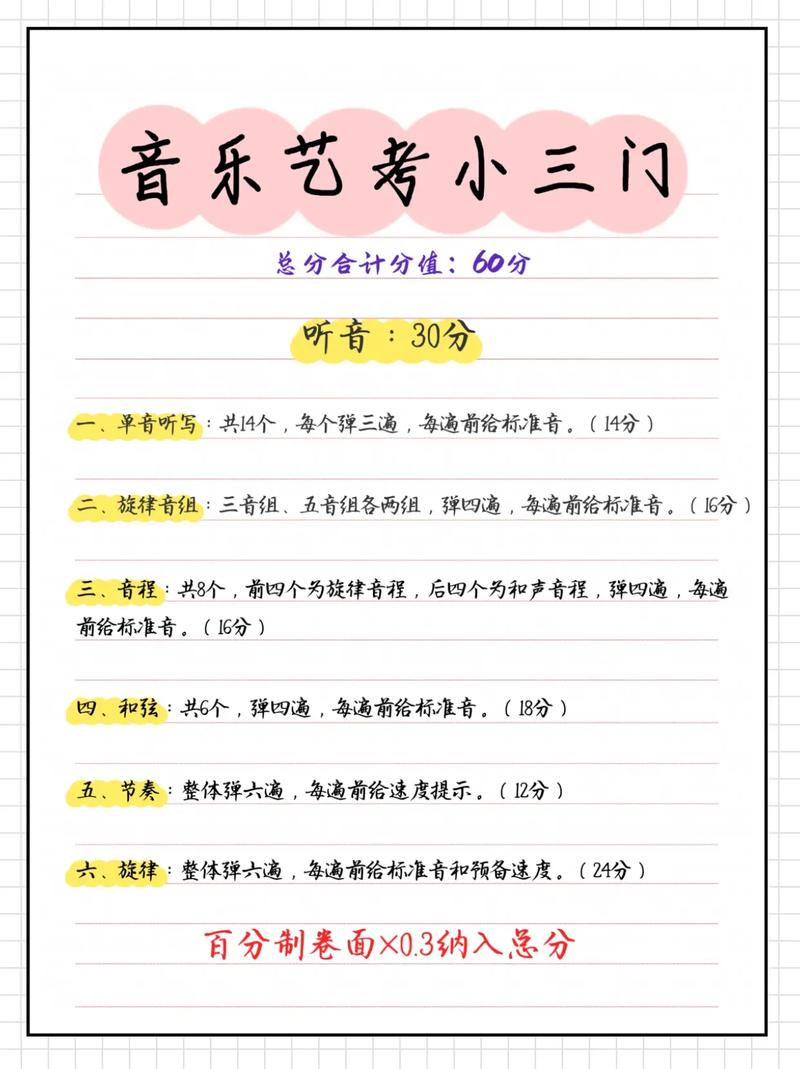 音乐艺考小三门
总分合计分值：60分
听音：30分
一、单音听写：共14个，每个弹三遍，每遍前给标准音。（14分）
二、旋律音组：三音组、五音组各两组，弹四遍，每遍前给标准音。（16分）
三、音程：共8个，前四个为旋律音程，后四个为和声音程，弹四遍，每遍
前给标准音。（16分）
四、和弦：共6个，弹四遍，每遍前给标准音。（18分）
五、节奏：整体弹六遍，每遍前给速度提示。（12分）
六、旋律：整体弹六遍，每遍前给标准音和预备速度。（24分）
百分制卷面×0.3纳入总分